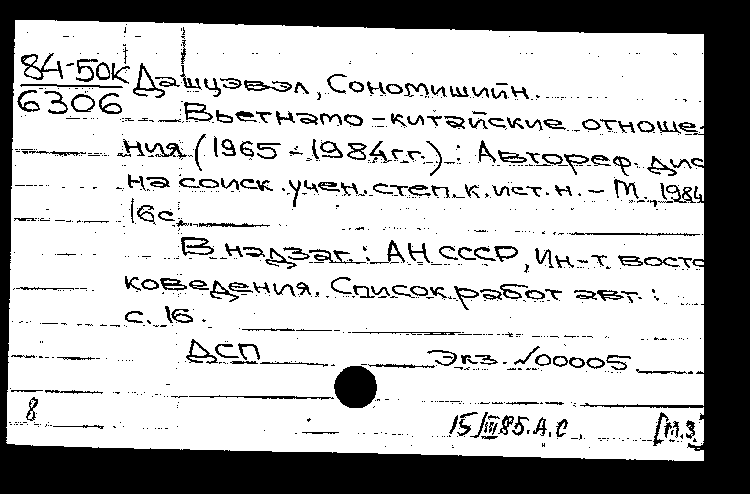 84-50к Дашцэвэл, Сономишийн.
6306
Вьетнамо-китайские отноше-
ния (1965-1984гг.) : Автореф. дис
на соиск. учен. степ. к. ист. н. - М., 1984
16с.
В надзаг.: АН СССР, Ин-т восто
коведения. Список работ авт.:
с. 16.
ДСП Экз. №00005
8
15/III85. А.С. [М.З.]